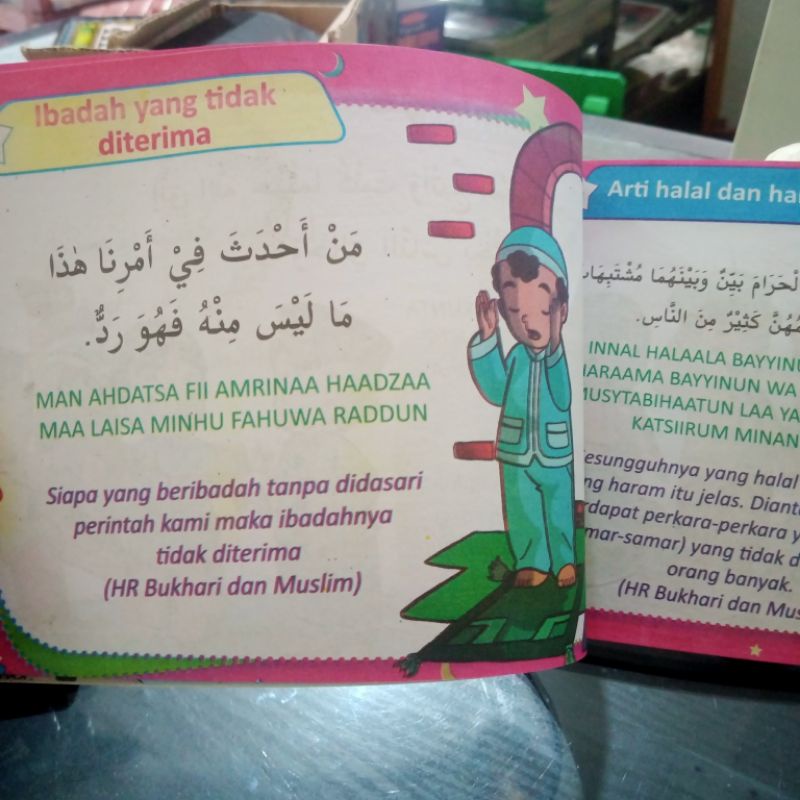 Ibadah yang tidak
diterima
مَنْ أَحْدَثَ فِيْ أَمْرِنَا هٰذَا
مَا لَيْسَ مِنْهُ فَهُوَ رَدٌّ.
MAN AHDATSA FII AMRINAA HAADZAA
MAA LAISA MINHU FAHUWA RADDUN
Siapa yang beribadah tanpa didasari
perintah kami maka ibadahnya
tidak diterima
(HR Bukhari dan Muslim)
Arti halal dan
الْحَرَامَ بَيِّنٌ وَبَيْنَهُمَا
كَثِيْرٌ مِنَ النَّاسِ.
INNAL HALAALA
BAYYINUN WA
LAA
KATSIIRUM
yang halal
haram itu jelas.
perkara-perkara
yang tidak
orang banyak.
(HR Bukhari dan